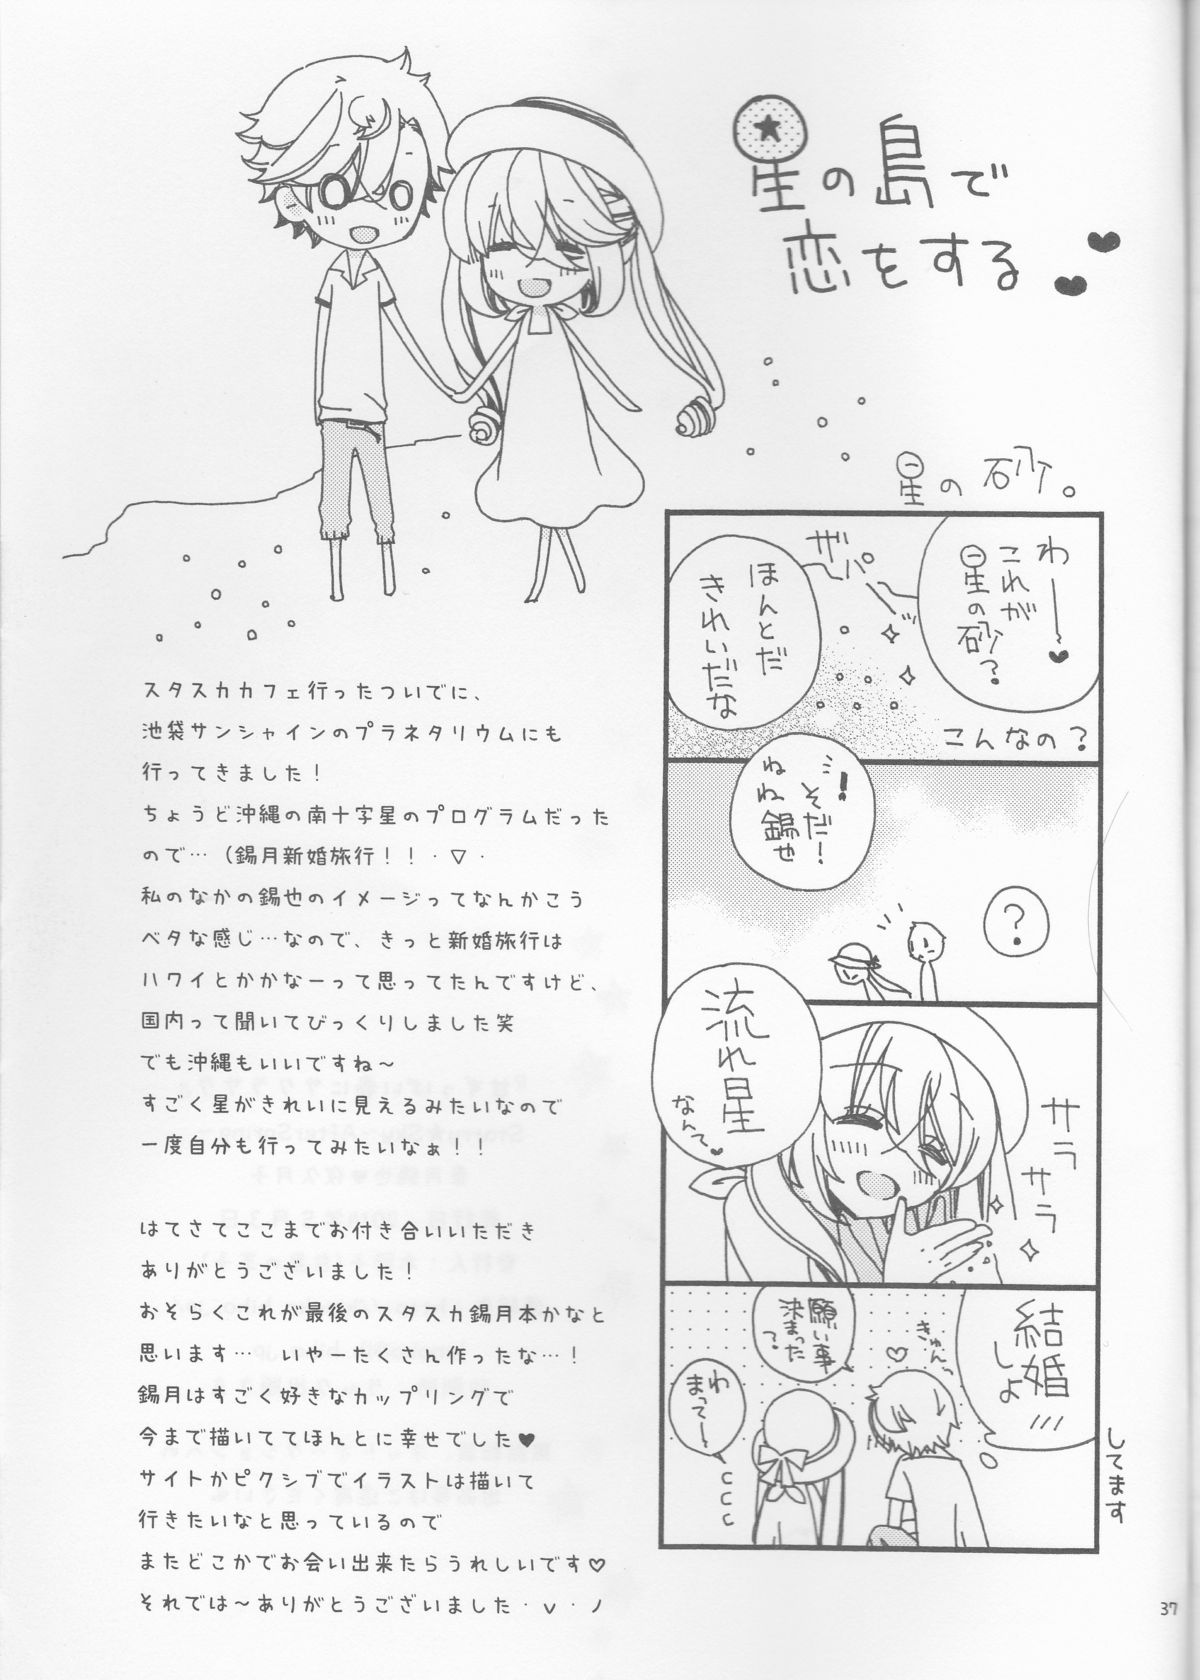 星の島で
恋をする
星の砂。
わーー♥
これが
星の砂?
ザパーンッ
ほんとだ
きれいだな
こんなの?
そだ!
ねね錫也
?
流れ星
なんて♥
サラ
サラ
結婚
しよ
きゅん〜
願い事
決まった
?
わー
まって
してます
スタスカカフェ行ったついでに、
池袋サンシャインのプラネタリウムにも
行ってきました!
ちょうど沖縄の南十字星のプログラムだった
ので…(錫月新婚旅行!!・▽・
私のなかの錫也のイメージってなんかこう
ベタな感じ…なので、きっと新婚旅行は
ハワイとかかなーって思ってたんですけど、
国内って聞いてびっくりしました笑
でも沖縄もいいですね〜
すごく星がきれいに見えるみたいなので
一度自分も行ってみたいなぁ!!
はてさてここまでお付き合いいただき
ありがとうございました!
おそらくこれが最後のスタスカ錫月本かなと
思います… いやーたくさん作ったな…!
錫月はすごく好きなカップリングで
今まで描いててほんとに幸せでした♥
サイトかピクシブでイラストは描いて
行きたいなと思っているので
またどこかでお会い出来たらうれしいです♡
それでは〜ありがとうございました・v・ノ
37